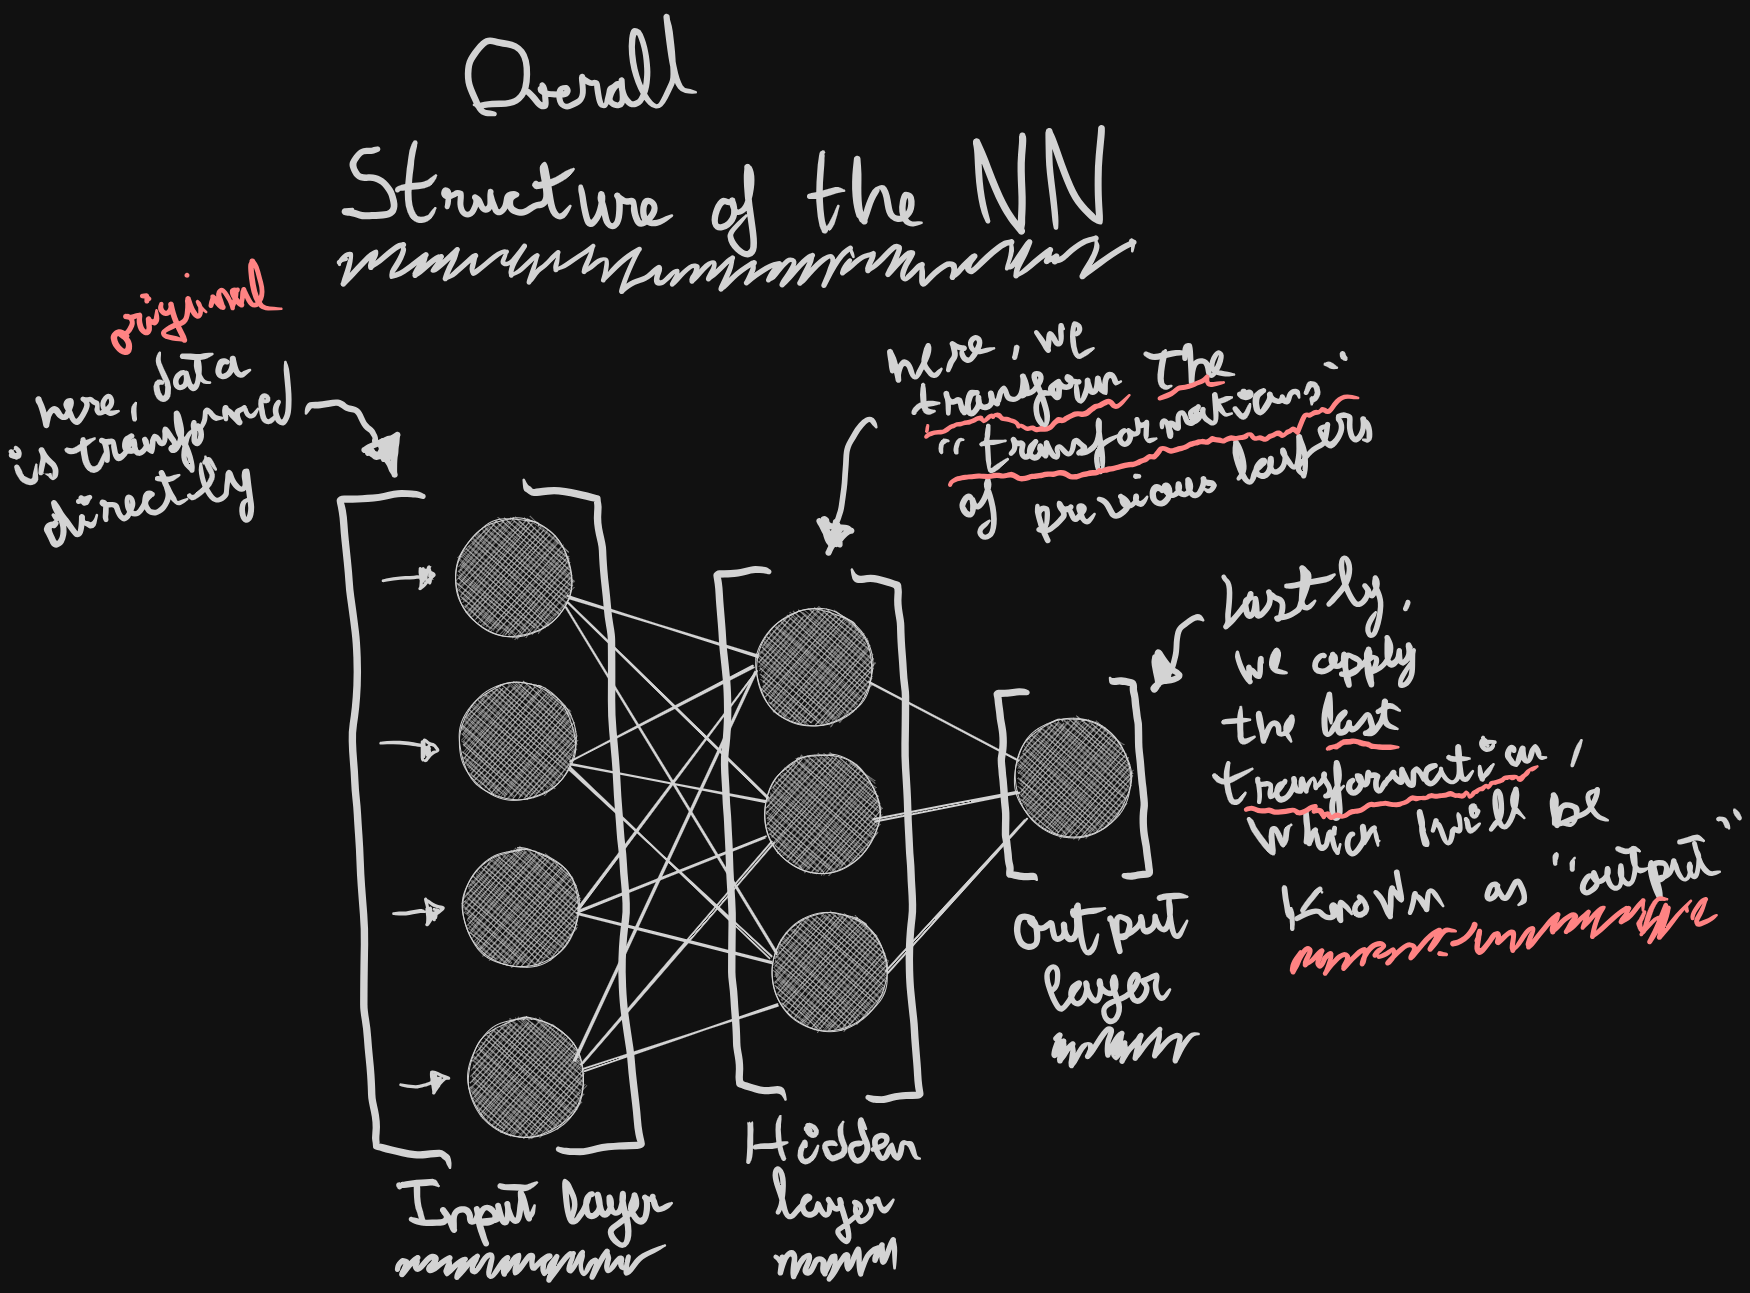 Overall
Structure of the NN
original
here, data
is transformed
directly
here, we
transform the
"transformations"
of previous layers
Lastly,
we apply
the last
transformation,
which will be
known as "output"
output
layer
Hidden
layer
Input layer